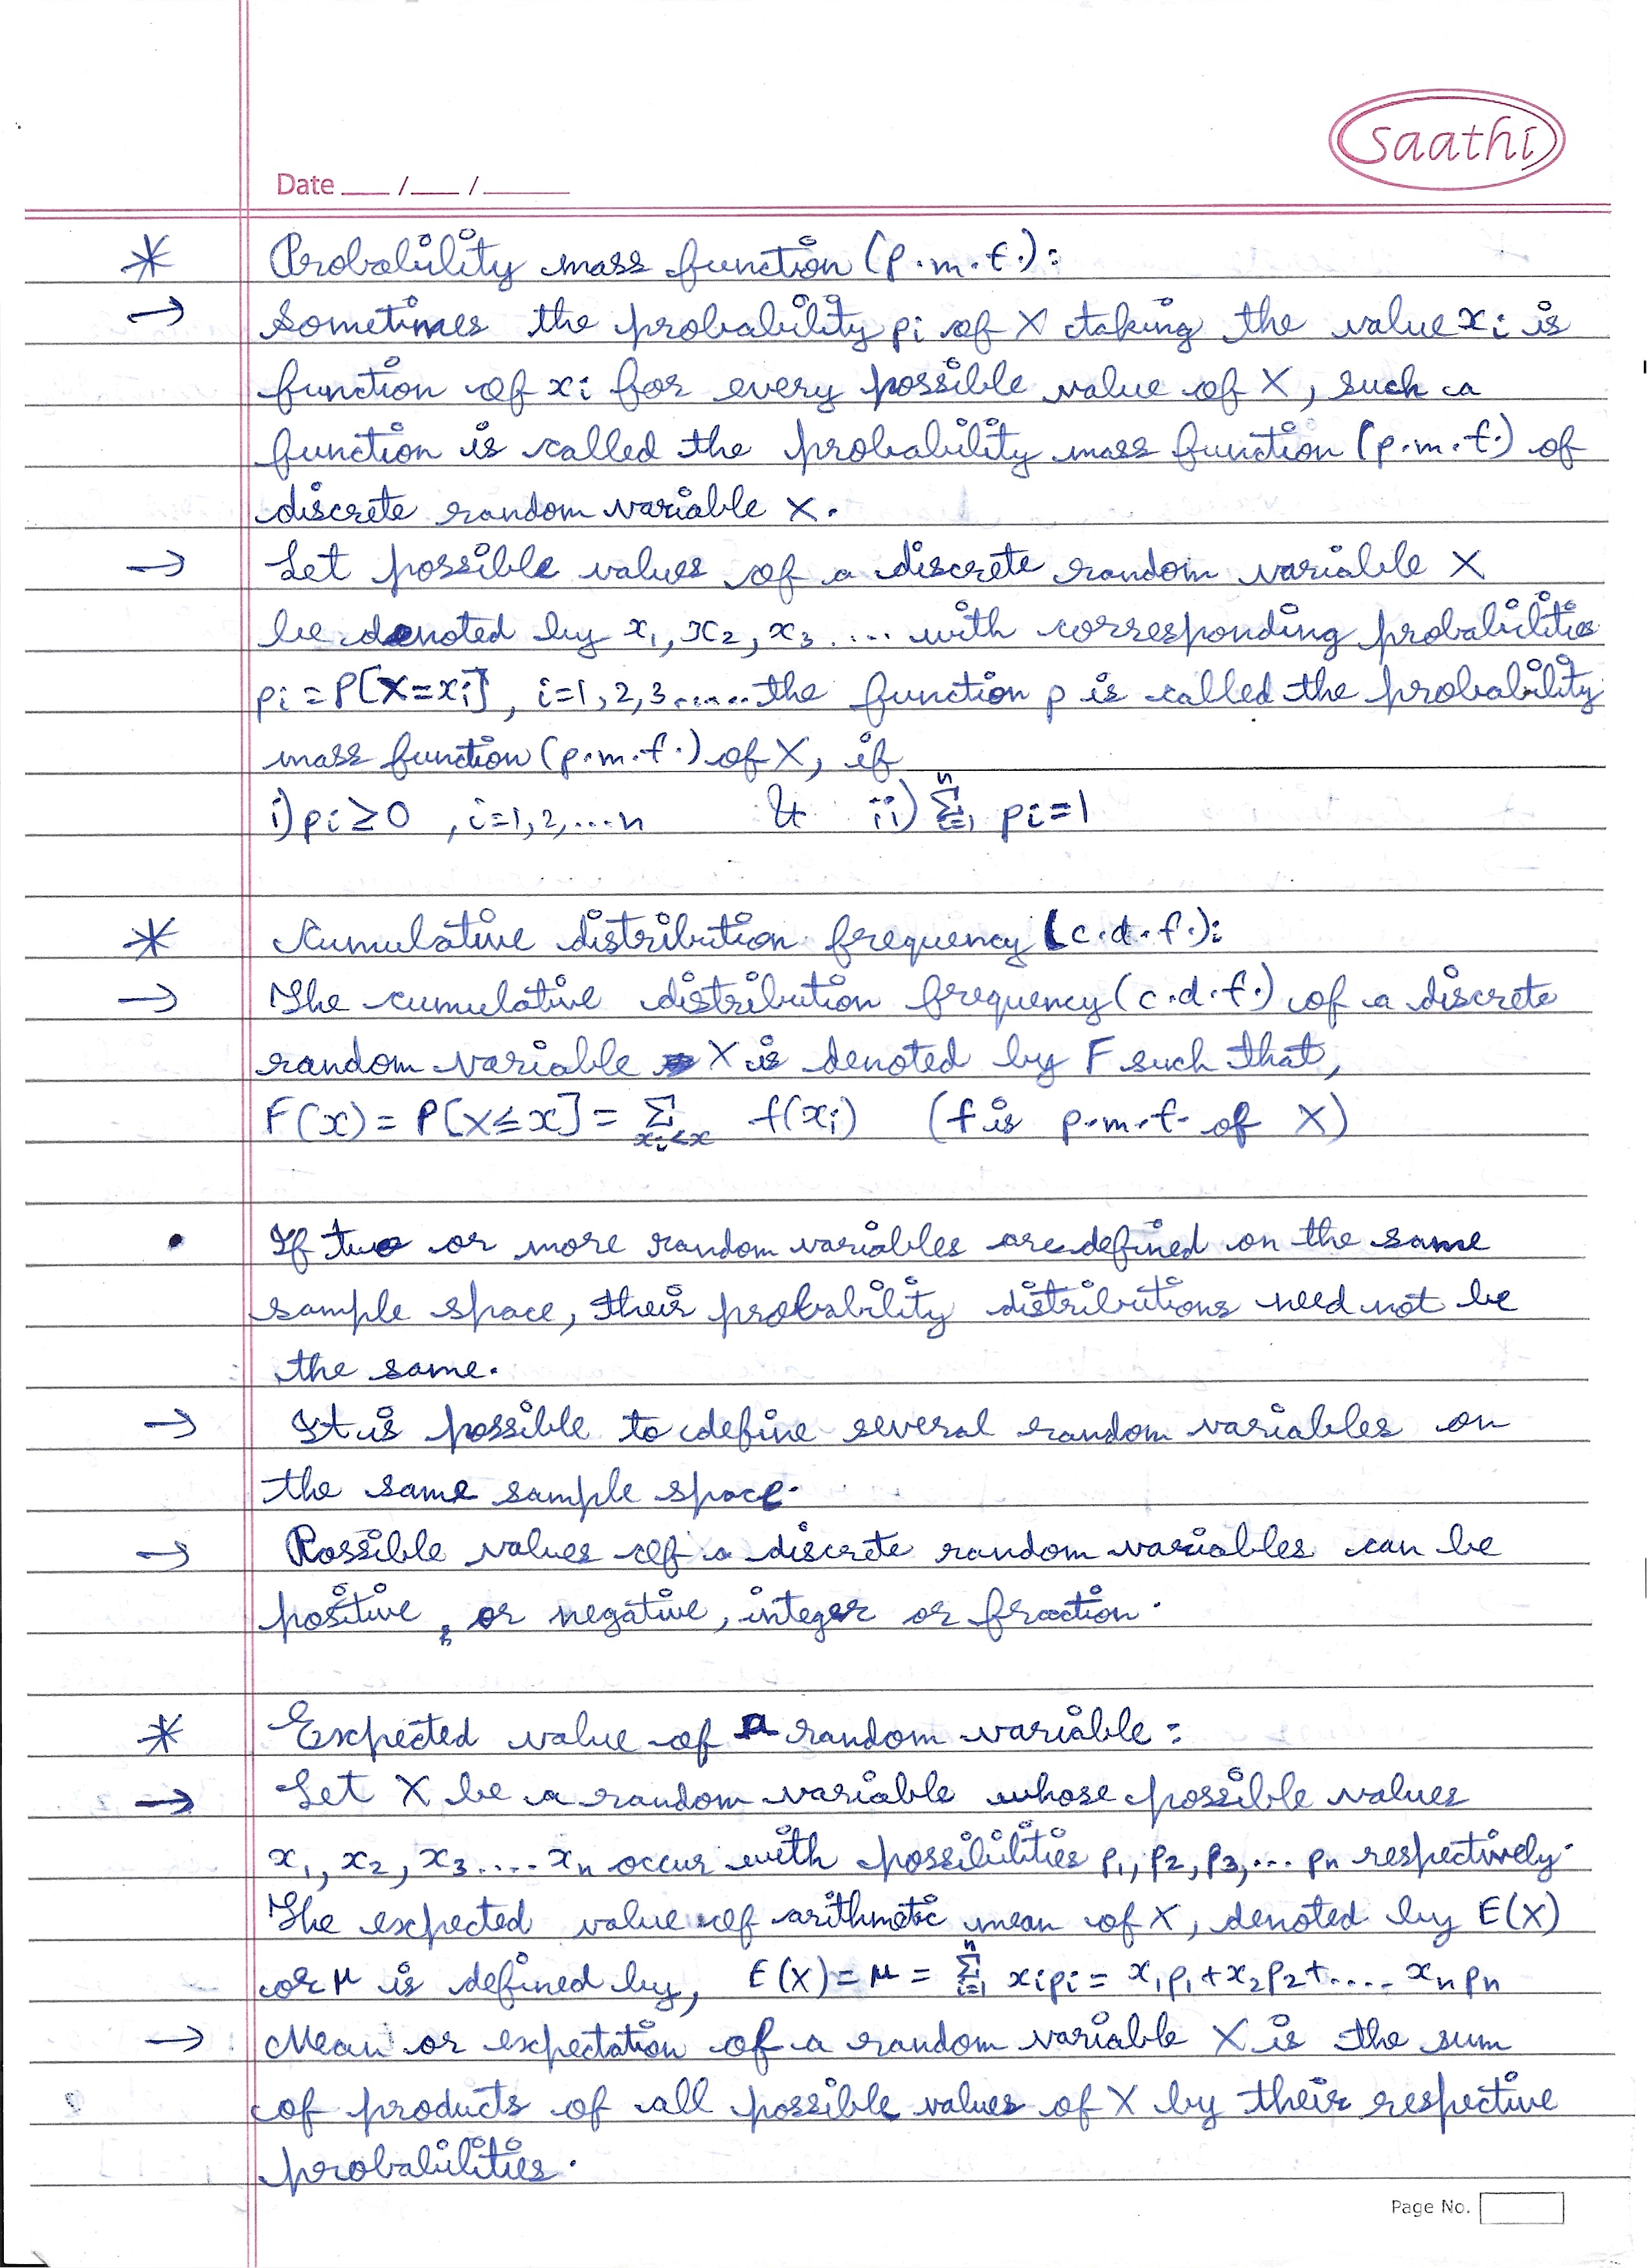 saathi
Date ___ / ___ / ______
* Probability mass function (p.m.f.):
→ Sometimes the probability pi of X taking the value xi is
function of xi for every possible value of X, such a
function is called the probability mass function (p.m.f.) of
discrete random variable X.
→ Let possible values of a discrete random variable X
be denoted by x₁, x₂, x₃ .... with corresponding probabilities
pi = P[X=xi], i=1,2,3......the function p is called the probability
mass function (p.m.f.) of X, if
i) pi ≥ 0 , i=1,2,...n & ii) n∑i=1 pi = 1
* Cumulative distribution frequency (c.d.f.):
→ The cumulative distribution frequency (c.d.f.) of a discrete
random variable X is denoted by F such that,
F(x) = P[X≤x] = ∑xi<x f(xi) (f is p.m.f. of X)
• If two or more random variables are defined on the same
sample space, their probability distributions need not be
the same.
→ It is possible to define several random variables on
the same sample space.
→ Possible values of a discrete random variables can be
positive, or negative, integer or fraction.
* Expected value of a random variable:
→ Let X be a random variable whose possible values
x₁, x₂, x₃.... xn occur with possibilities p₁, p₂, p₃,... pn respectively.
The expected value of arithmetic mean of X, denoted by E(X)
or μ is defined by, E(X) = μ = n∑i=1 xipi = x₁p₁+x₂p₂+.... xnpn
→ Mean or expectation of a random variable X is the sum
of products of all possible values of X by their respective
probabilities.
Page No.